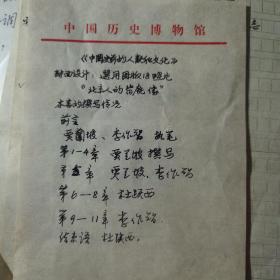 中国历史博物馆
《中国史前的人类和文化》
封面设计：选用图版18照光
"北京人的背鹿像"
本书的撰写情况
前言
贾兰坡、李作智 执笔
第1-4章 贾兰坡撰写
第5章 贾兰坡、李作智
第6-8章 杜耀西
第9-11章 李作智
结束语 杜耀西。